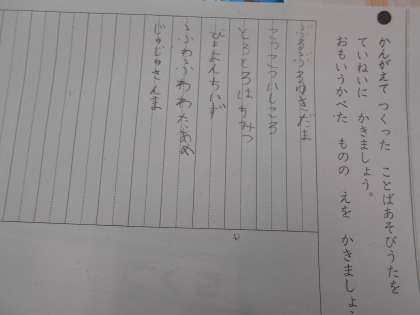 かんがえて つくった ことばあそびうたを
ていねいに かきましょう。
おもいうかべた ものの えを かきましょ
ぶるぶるゆきだま
こつこついしころ
とろとろはちみつ
びよよんちいず
ふわふわわたあめ
じゅじゅさんま